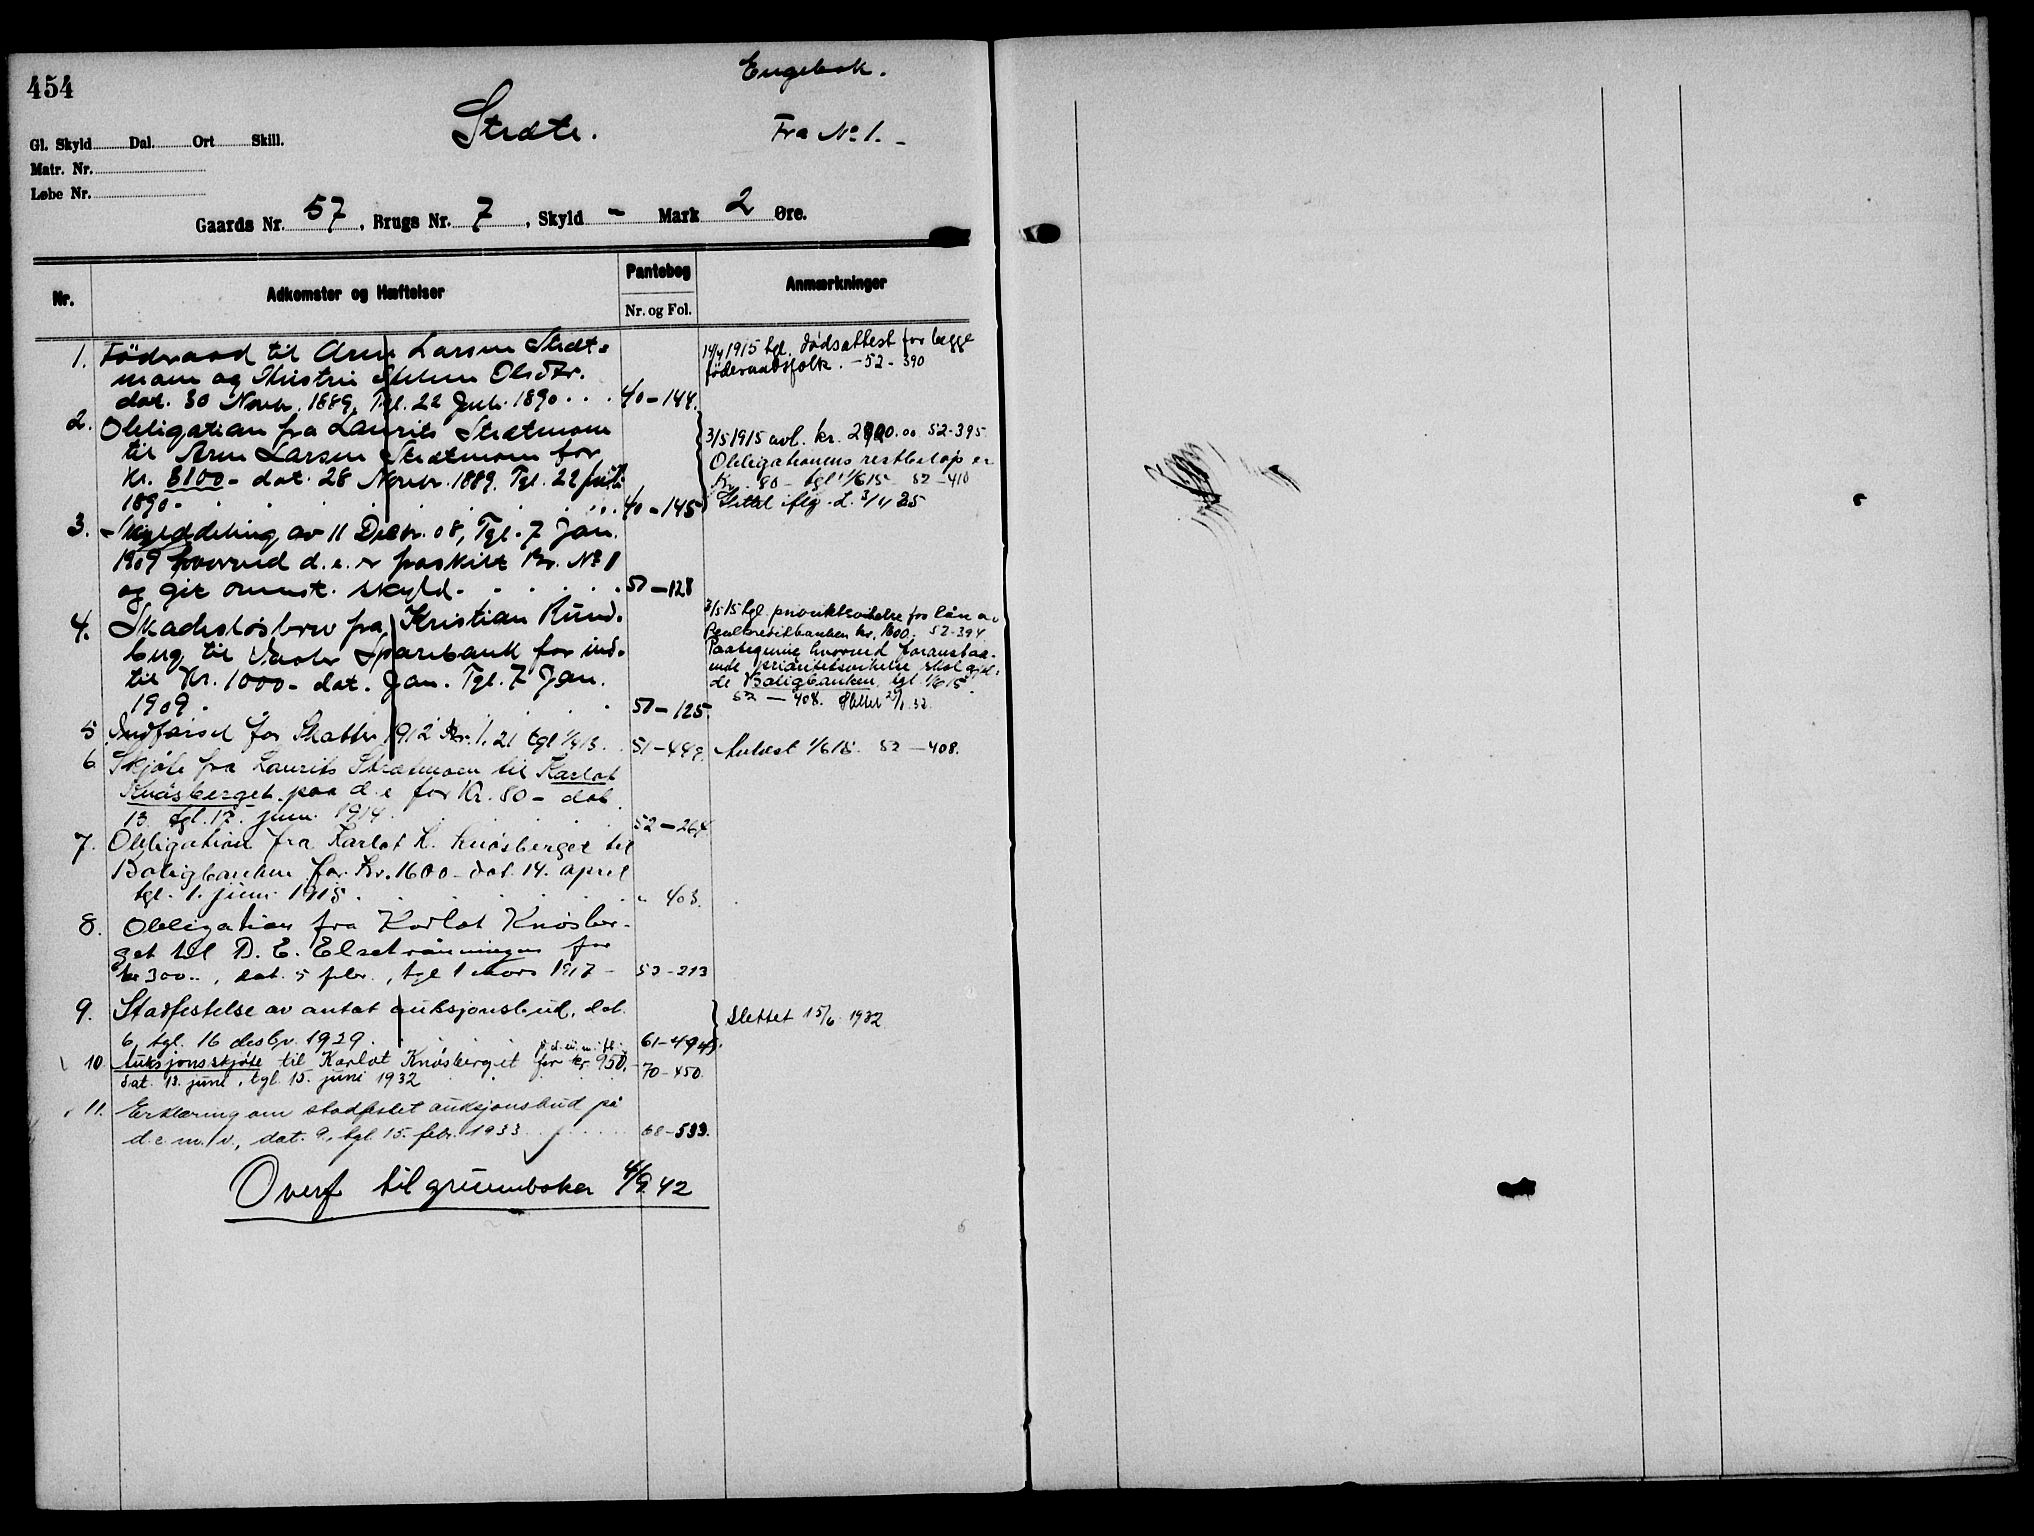 454
Engebak.
Stræte.
Fra No 1.
Gl. Skyld Dal. Ort Skill.
Matr. Nr.
Løbe Nr.
Gaards Nr. 57, Brugs Nr. 7, Skyld - Mark 2 Øre.
Nr.
Adkomster og Hæftelser
Pantebog
Nr. og Fol.
Anmærkninger
1. Föderaad til Arne Larsen Stræt-
moen og Olsdtr.
dat. 30 Novbr. 1889, Tgl. 22 Juli 1890 40-144.
14/4 1915 tgl. dødsattest for begge
föderaadsfolk. - 52-390
2. Obligation fra Laurits Strætmoen
til Arne Larsen Strætmoen for
Kr. 3100 - dat. 28 Novbr. 1889. Tgl. 22 juli
1890. 40-145
3/5 1915 avl. kr. 52-395
Obligationens restbeløp er
Kr. 80 - tgl 1/6 15 52-410
Slettet iflg. L. 3/11 35
3. Skylddeling av 11 Decbr. 08, Tgl. 7 Jan.
1909 hvorved d. e. er fraskilt Br. No 1
og git ovenst. skyld. 50-128
4. Skadesløsbrev fra Kristian Rund-
berg til Vaaler Sparebank for ind-
til Kr. 1000 - dat. Jan. Tgl. 7 Jan.
1909. 50-125.
3/5 15 tgl. prioritetsvikelse for lån av
Realkreditbanken kr. 1600. 52-394.
Paategning hvorved foranstaa-
ende prioritetsvikelse skal gjel-
de Boligbanken, tgl. 1/6 15.
52-408. Slettet 32.
5. Indførsel for Skatter 1912 Kr. 1.21 tgl 51-449.
Avlest 1/6 15. 52-408.
6. Skjøte fra Laurits Strætmoen til Karlot
Knøsberget paa d.e for Kr. 80 - dat.
13. tgl. 17. juni 1914. 52-264.
7. Obligation fra Karlot K. Knøsberget til
Boligbanken for Kr. 1600 - dat. 14. april
tgl. 1. juni 1915. " 408.
8. Obligation fra Karlot Knøsber-
get til D. E. for
kr 300.-, dat. 5 febr., tgl 1 mars 1917 - 53-213
9. Stadfestelse av antat auksjonsbud, dat.
6, tgl. 16 desbr. 1929. 61-494.
Slettet 15/6 1932.
10. Auksjonsskjøte til Karlot Knøsberget p. d. e. m. fl. for kr. 950,
dat. 13. juni, tgl. 15. juni 1932 70-450.
11. Erklæring om stadfestet auksjonsbud på
d.e m.v., dat. 9., tgl. 15. febr. 1933. 68-533.
Overf til grunnboken 4/9 42